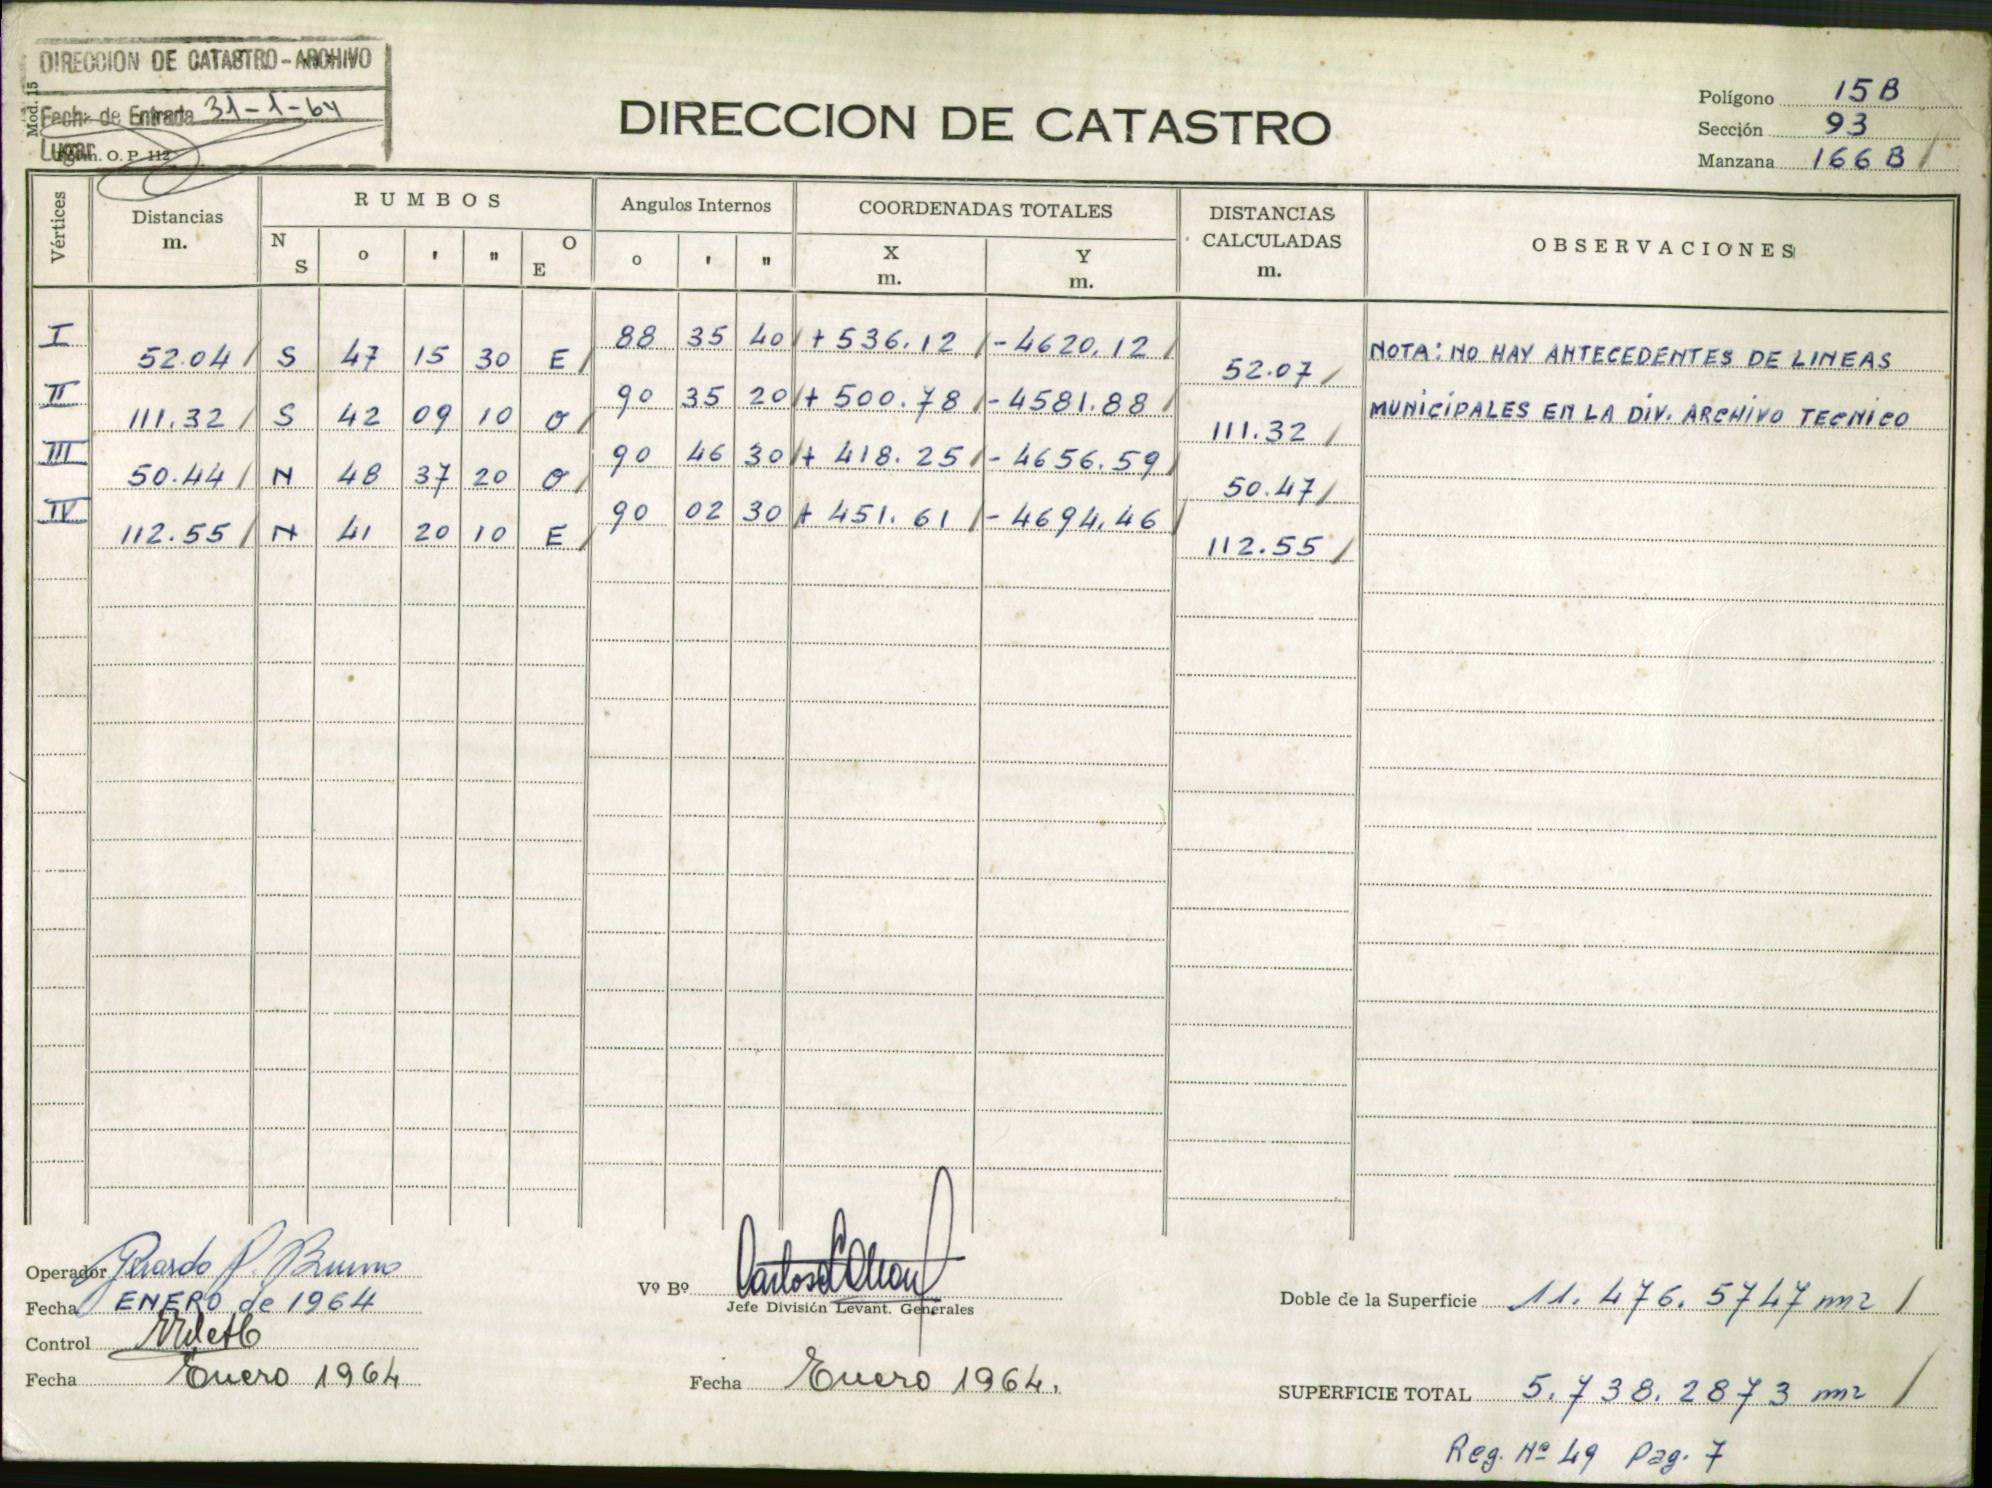 DIRECCION DE CATASTRO - ARCHIVO
Mod. 15
Fecha de Entrada 31-1-64
Lugar
Form. O. P. 112
DIRECCION DE CATASTRO
Polígono 15B
Sección 93
Manzana 166 B
Vértices
Distancias
m.
RUMBOS
N
S
o
'
"
O
E
Angulos Internos
o
'
"
COORDENADAS TOTALES
X
m.
Y
m.
DISTANCIAS
CALCULADAS
m.
OBSERVACIONES
I 88 35 40 + 536.12 - 4620.12
52.04 S 47 15 30 E 52.07
NOTA: NO HAY ANTECEDENTES DE LINEAS
II 90 35 20 + 500.78 - 4581.88
111.32 S 42 09 10 O 111.32
MUNICIPALES EN LA DIV. ARCHIVO TECNICO
III 90 46 30 + 418.25 - 4656.59
50.44 N 48 37 20 O 50.47
IV 90 02 30 + 451.61 - 4694.46
112.55 N 41 20 10 E 112.55
Operador Gerardo P. Bruno
Fecha ENERO de 1964
Control
Fecha Enero 1964
Vº Bº
Jefe División Levant. Generales
Fecha Enero 1964.
Doble de la Superficie 11.476.5747 m2
SUPERFICIE TOTAL 5.738.2873 m2
Reg. Nº 49 Pag. 7